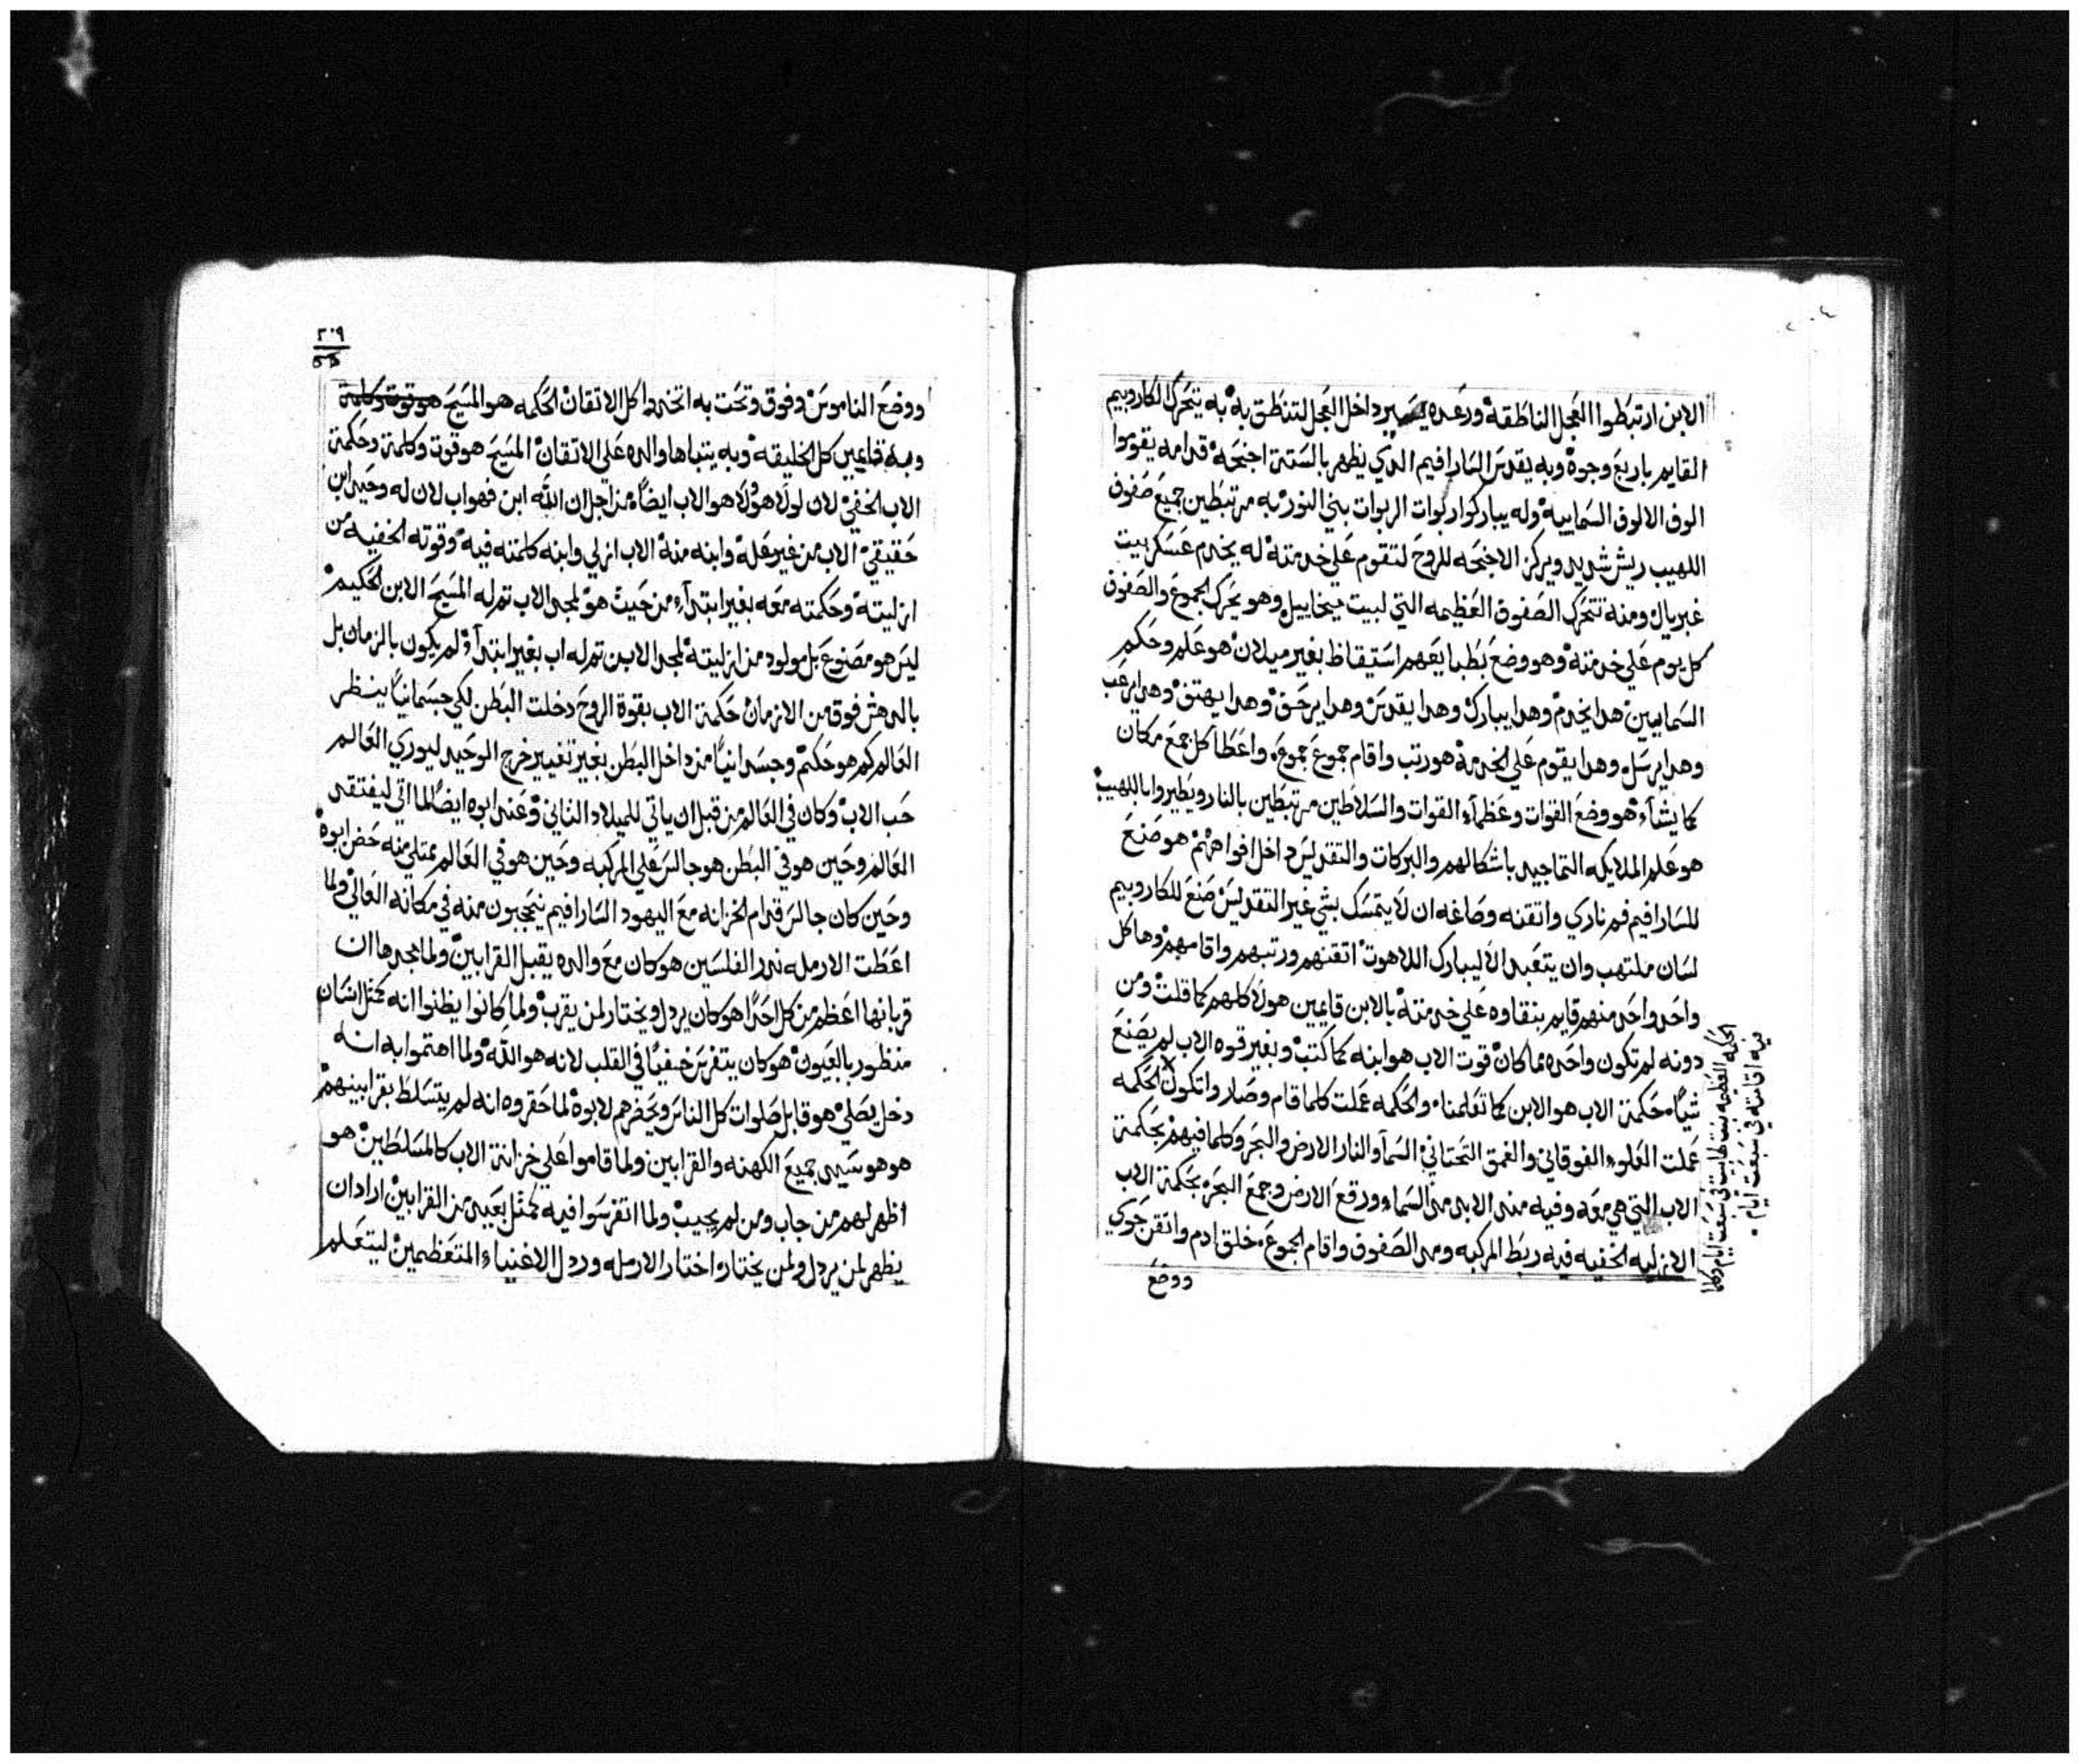 الابن ارتبطوا العجل الناطقة ورعده يسير داخل العجل لتنطق به به يتحرك الكاروبيم
القايم باربع وجوه وبه يقدس السارافيم الدي يظهر بالستة اجنحة قدامه يقوموا
الوف الالوف السماييه وله يباركوا ربوات الربوات بني النور به مرتبطين جميع صفوف
اللهيب ريش شديد ويركز الاجنحه للروح لتقوم علي خدمته له يخدم عسكر بيت
غبريال ومنه تتحرك الصفوف العظيمه التي لبيت ميخاييل وهو يحرك الجموع والصفوف
كل يوم علي خدمته وهو وضع بطبايعهم استيقاظ بغير ميلان هو علم وحكم
السماييين هدا يخدم وهدا يبارك وهدا يقدس وهدا يزحق وهدا يهتف وهدا يرعب
وهدا يرسل وهدا يقوم علي الخدمة هو رتب واقام جموع جموع واعطا كل جمع مكان
كما يشاء هو وضع القوات وعظماء القوات والسلاطين مرتبطين بالنار ويطيروا باللهيب
هو علم الملايكه التماجيد باشكالهم والبركات والتقديس داخل افواههم هو صنع
للسارافيم فم ناري واتقنه وصاغه ان لا يتمسك بشي غير التقديس صنع للكاروبيم
لسان ملتهب وان يتعبد الا ليبارك اللاهوت اتقنهم ورتبهم واقامهم وها كل
واحد واحد منهم قايم بنقاوه علي خدمته بالابن قايمين هولا كلهم كما قلت ومن
دونه لم تكون واحده مما كان قوت الاب هو ابنه كما كتب وبغير قوه الاب لم يصنع
شيا حكمة الاب هو الابن كما تعلمنا والحكمه عملت كلما قام وصار واتكون الحكمه
عملت العلو الفوقاني والعمق التحتاني السما والنار الارض والبحر وكلما فيهم بحكمة
الاب التي هي معه وفيه مند الابد مد السماء ورقع الارض وجمع البحر بحكمة الاب
الازليه الخفيه فيه ربط المركبه ومد الصفوف واقام الجموع خلق ادم واتقن حوي
ووضع
الحكمه العظيمه بنت البيت في سبعت ايام وكلما
فيه اقامته في سبعت ايام
٢٠٩
ووضع الناموس وفوق وتحت به اتخدوا كل الاتقان الحكمه هو المسيح هو قوت وكلمة
وبه قايمين كل الخليقه وبه يتباها والده علي الاتقان المسيح هو قوت وكلمة وحكمة
الاب الخفي لان لولا هو ولا هو الاب ايضا من اجل ان الله ابن فهو اب لان له وحيد ابن
حقيقي الاب من غير عله وابنه منه الاب ازلي وابنه كلمته فيه وقوته الخفيه من
ازليته وحكمته معه بغير ابتداء من حيث هو لمجد الاب تم له المسيح الابن الحكيم
ليس هو مصنوع بل مولود من ازليته لمجد الابن تم له اب بغير ابتداء لم يكون بالزمان بل
بالدهش فوق من الازمان حكمة الاب بقوة الروح دخلت البطن لكي جسمانيا ينظر
العالم كم هو حكيم وجسدانيا من داخل البطن بغير تغيير خرج الوحيد ليوري العالم
حب الاب وكان في العالم من قبل ان ياتي للميلاد الثاني وعند ابوه ايضا لما اتي ليفتقد
العالم وحين هو في البطن هو جالس علي المركبه وحين هو في العالم ممتلي منه حضن ابوه
وحين كان جالس قدام الخزانه مع اليهود السارافيم يتعجبون منه في مكانه العالي ولما
اعطت الارمله ندر الفلسين هو كان مع والده يقبل القرابين ولما مجدها ان
قربانها اعظم من كل احدا هو كان يردل ويختار لمن يقرب ولما كانوا يظنوا انه كمثل انسان
منظور بالعيون هو كان يتفرس خفيا في القلب لانه هو الله ولما اهتموا به انه
دخل يصلي هو قابل صلوات كل الناس ويحضرهم لابوه لما حقروه انه لم يتسلط بقرابينهم
هو هو سيد جميع الكهنه والقرابين ولما قاموا علي خزانة الاب كالمسلطين هو
اظهر لهم من جاب ومن لم يجيب ولما اتفرسوا فيه كمثل بعيد من القرابين اراد ان
يظهر لمن يردل ولمن يختار واختار الارمله وردل الاغنياء المتعظمين ليتعلم